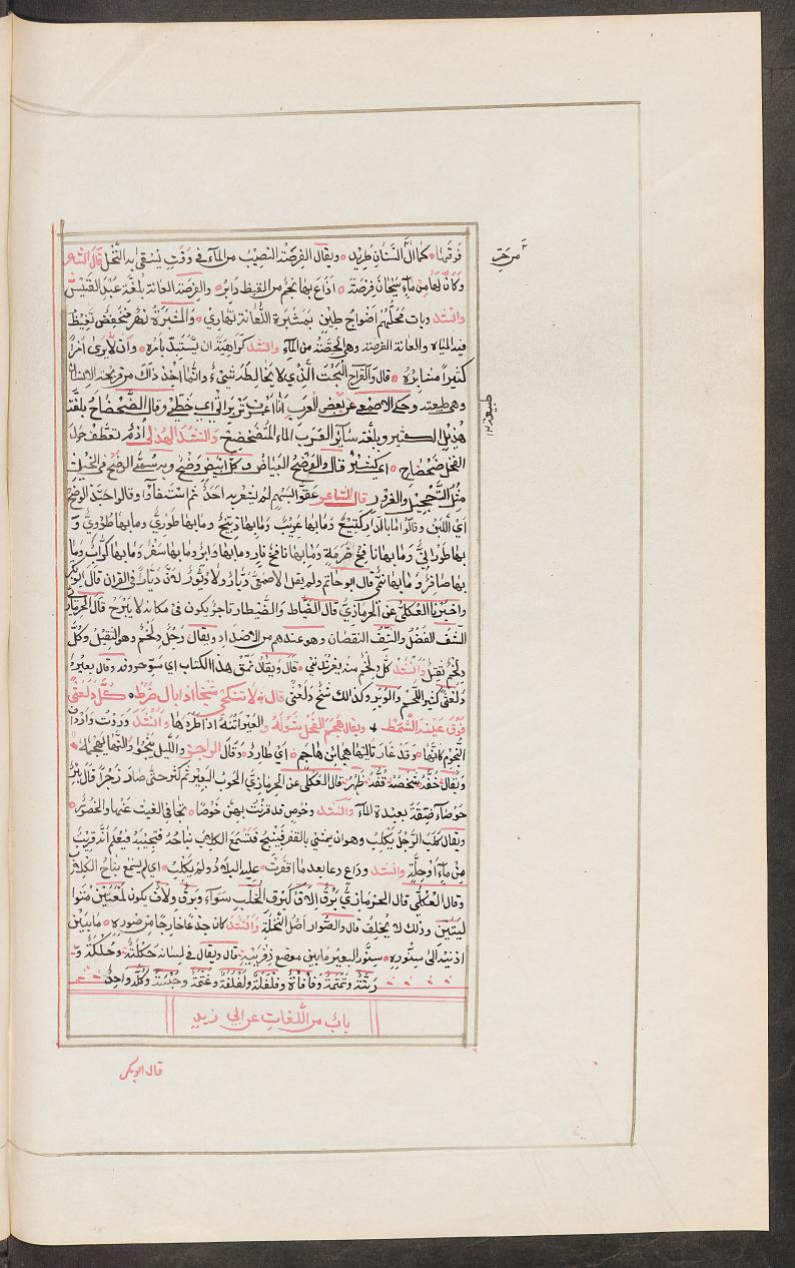 فوقها كما لألأ السنان طريد ويقال الفرصة النصيب من الماء في وقت يسقى به النخل قال الشاعر
وكان لها من ماء سيحان فرصة اذاع بها نجم من القيظ دابر والفرصة العانة بلغة عبد القيس
وانشد وبات محلهم اضواج طين بمشبرة العانة تهاري والمشبرة نهر منخفض تفيظ
فيه المياه والعانة الفرصة وهي الحصة من الماء وانشد كراهية ان يستبد بامره وان لا يرى امرا
كثيرا مثابره قال والقراح البحت الذي لا يخالطه شيء وانما اخذ ذلك من قريحة الانسان
وهي طبيعته وحكى الاصمعي عن بعض العرب انا اعرف تزبرتي اي خطي وقال الضحضاح بلغة
هذيل الكثير وبلغة سائر العرب الماء المتضحضح وانشد الهذلي ادم تعطف حول
الفحل ضحضاح اي كثير قال والوضح البياض وكل ابيض وضح وبه سمي الوضح في الخيل
مثل التحجيل والغرر قال الشاعر عقوا بسهم لم يشعر به احد ثم استفاؤا وقالوا حبذا الوضح
اي اللبن وقالوا ما بالدار كتيع وما بها عريب وما بها دبيج وما بها طوري وما بها طؤوي و
بها طوراني وما بها نافخ ضرمة وما بها نافخ نار وما بها وابر وما بها شفر وما بها كراب وما
بها صافر وما بها نمي قال ابو حاتم ولم يقل الاصمعي ديار ولا ديور لان ديار في القران قال ابو بكر
واخبرنا العكلي عن الحرمازي قال الضياط والضيطار تاجر يكون في مكانه لا يبرح قال الحرمازي
الشف الفضل والشف النقصان وهو عندهم من الاضداد ويقال رجل دلخم وهو الثقيل وكل
دلخم ثقيل وانشد كل دلخم منه يغرندني قال ويقال نمق هذا الكتاب اي سو حروفه وقال بعير
دلعثي كثير اللحم والوبر وكذلك شيخ دلعثي قال لا تنكحي شيخا اذا بال ضرط كل دلعثي
فوق عينيه الشمط ويقال هجم الفحل شوله والعير اتنه اذا طردها وانشد وردت وارداف
النجوم كانها وقد غار تاليها هجاين هاجم اي طارد وقال الراجز والليل ينجو والنهار يهجمه
ويقال خفه شخصه قفه ظهره قال العكلي عن الحرمازي الحوب البعير ثم كثر حتى صار زجرا قال بئر
خوصاء ضيقة بعيدة الماء وانشد وخوص قد قرنت بهن خوصا تجافي الغيث عنها والخصور
ويقال كلب الرجل يكلب وهو ان يمشي بالقفر فينبح فتسمع الكلاب نباحه فتجيبه فيعلم انه قريب
من ماء او حلة وانشد وداع دعا بعد ما اقفرت عليه البلاد ولم يكلب اي لم يسمع نباح الكلاب
وقال العكلي قال الحرمازي برق الاق كبرق الخلب سواء وبرق ولاف يكون لمعتين متوا
ليتين وذلك لا يخلف قال والصوار اصل النخلة وانشد كان جذعا خارجا من صوره ما بين
اذنيه الى سنوره سنور البعير ما بين موضع ذفرييه قال ويقال في لسانه حكلة وحلكة و
رتة وتمتمة وفأفأة وفلفلة ولفلفة وغتمة وحبسة وكله واحد
باب من اللغات عن ابي زيد
قال ابو بكر
من تحت
طبيعته